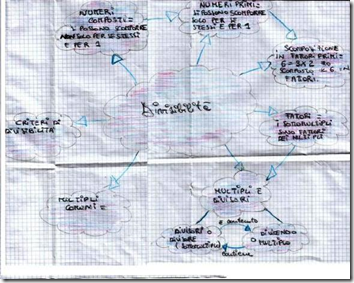 NUMERI
COMPOSTI =
SI POSSONO SCOMPORRE
NON SOLO PER SE STESSI
E PER 1
NUMERI PRIMI =
SI POSSONO SCOMPORRE
SOLO PER SE
STESSI E PER 1
SCOMPOSIZIONE
IN FATTORI PRIMI=
6 = 3 X 2
SCOMPOSTO 6 IN
FATTORI.
Divisibilità
CRITERI DI
DIVISIBILITÀ
FATTORI =
I SOTTOMULTIPLI
SONO FATTORI
DEI MULTIPLI
MULTIPLI
COMUNI =
MULTIPLI E
DIVISORI
DIVISORI O
DIVISORE
(SOTTOMULTIPLO)
è contenuto
contiene
DIVIDENDO
O MULTIPLO